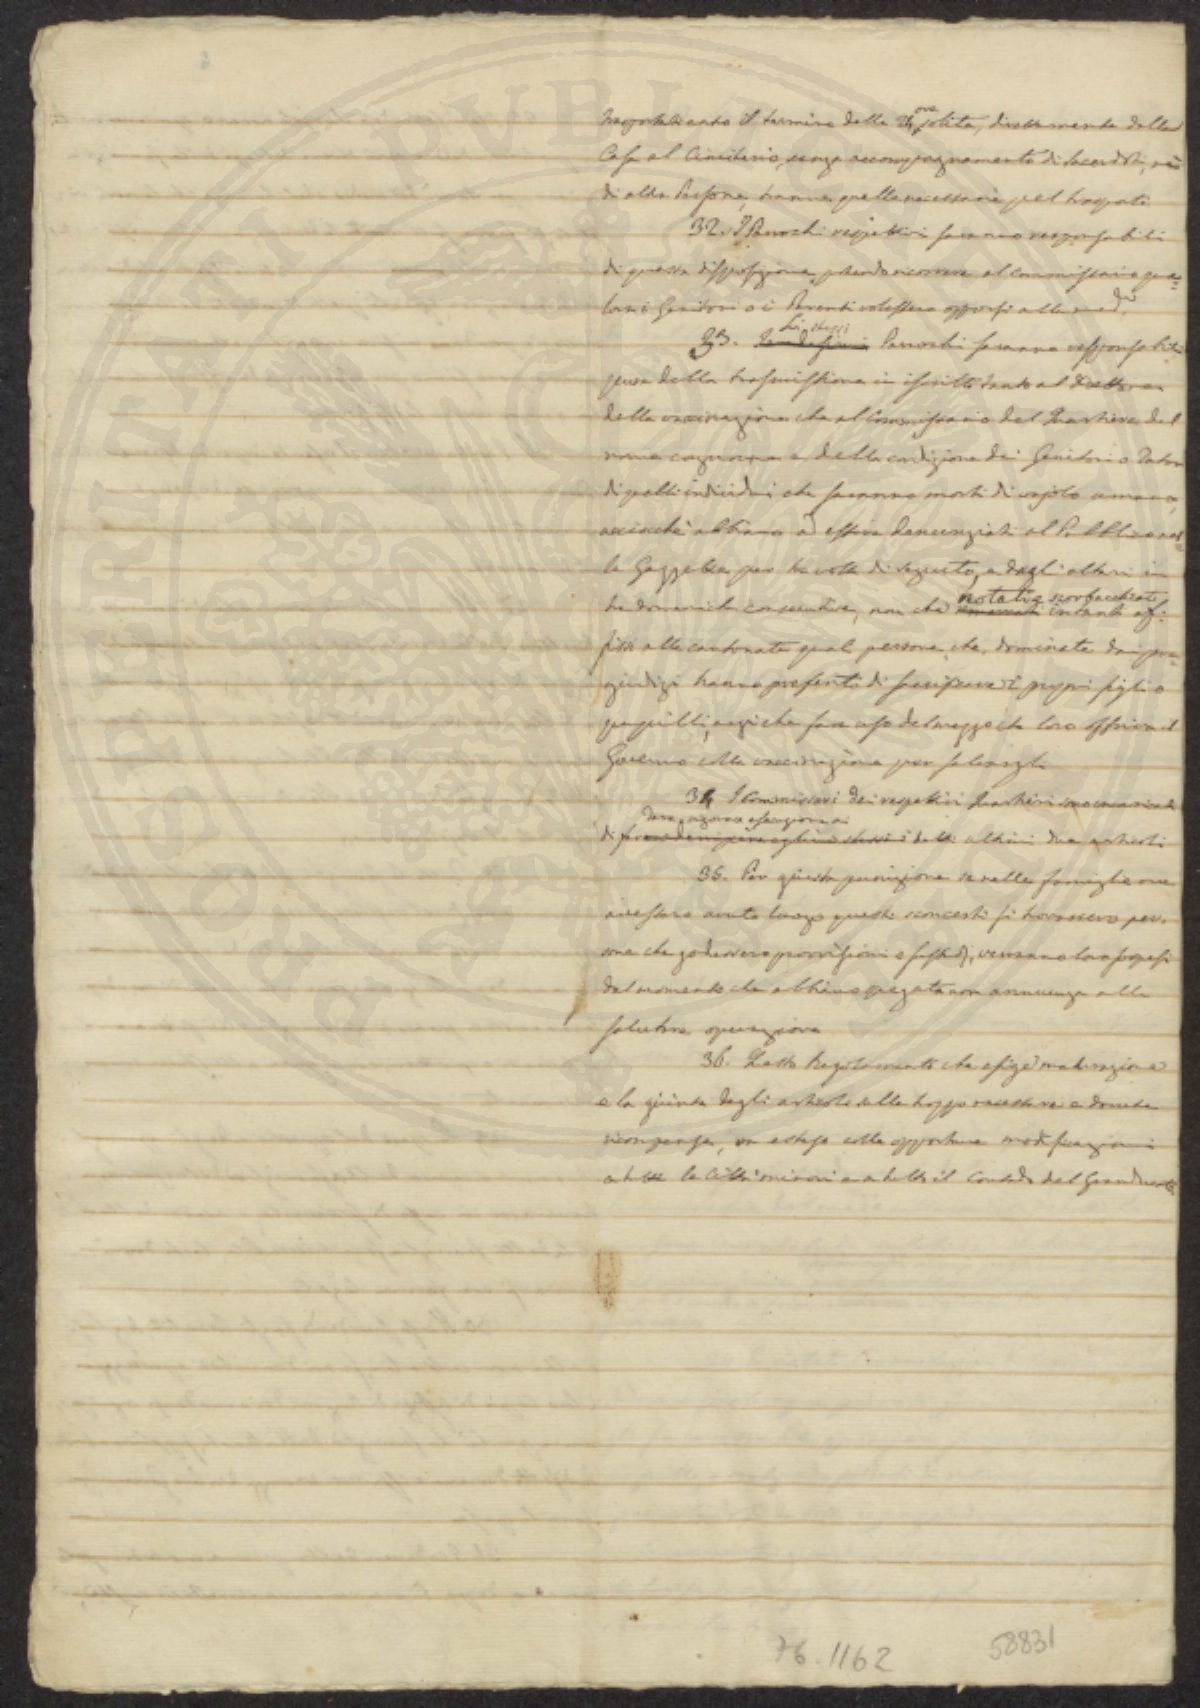 trasportati entro il termine delle 24 ore solite, direttamente dalla
Casa al Cimiterio, senza accompagnamento di Sacerdoti, nè
di altre Persone, tranne quelle necessarie pel trasporto
32. I Parrochi respettivi saranno responsabili
di questa disposizione, potendo ricorrere al Commissario qua=
lora i Genitori o i Parenti volessero opporsi alla med.a
33. Li stessi Parrochi saranno responsabili
pure della trasmissione in iscritto tanto al Direttore
della vaccinazione che al Commissario del Quartiere del
nome cognome e della condizione dei Genitori o Tutori
di quelli individui che saranno morti di vajolo umano,
acciocchè abbiano ad essere denunziati al Pubblico nel=
la Gazzetta per tre volte di seguito, e dagli altari in
tre domeniche consecutive, non che notati e
fissi alle cantonate quali persone che, dominate dai pre=
giudizi hanno preferito di sacrificare i proprj figli o
pupilli, anzichè fare uso del mezzo che loro offriva il
Governo colla vaccinazione per salvargli
34 I Commissarj dei respettivi Quartieri
di dare rigorosa esecuzione ai detti ultimi due articoli
35. Per giusta punizione se nelle famiglie ove
avessero avuto luogo questi sconcerti si trovassero per=
sone che godessero provvisioni o sussidj, verranno loro sospesi
dal momento che abbiano negata annuenza alla
salutare operazione
36. Detto Regolamento che esige maturazione
e la giunta degli articoli sulle troppo necessarie e dovute
ricompense, va esteso colle opportune modificazioni
a tutte le Città minori e a tutto il Contado del Granducato
76.1162
58831